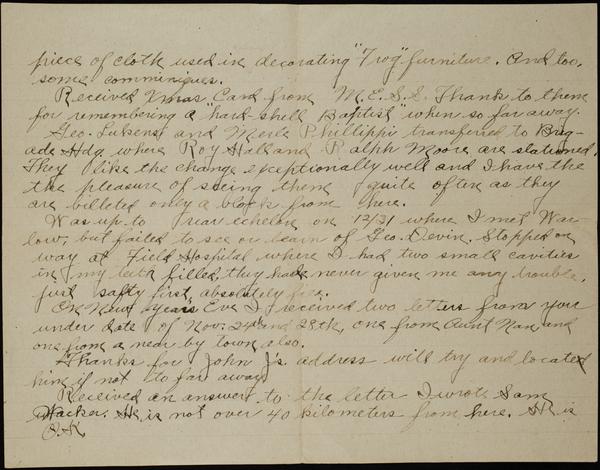 piece of cloth used in decorating "Frog" furniture. And too,
some comminiques.
Received Xmas. Card from M.E.S.S. Thanks to them
for remembering a "hard-shell Baptist" when so far away.
Geo. Lubens and Merle Phillippi transferred to Brig-
ade Hdq. where Roy Hall and Ralph Moore are stationed.
They like the change exceptionally well and I have the
the pleasure of seeing them quite often as they
are billeted only a block from here.
Was up to rear echelon on 12/31 where I met War-
low, but failed to see or learn of Geo. Devin. Stopped on
way at Field Hospital where I had two small cavities
in my teeth filled, they had never given me any trouble,
just safty first, absolutely fine.
On New Years Eve I received two letters from you
under date of Nov. 24th and 28th, one from Aunt Nan and
one from a near by town also.
Thanks for John J's. address will try and located
him if not to far away.
Received an answer to the letter I wrote Sam
Hacker. He is not over 40 kilometers from here. He is
O.K.